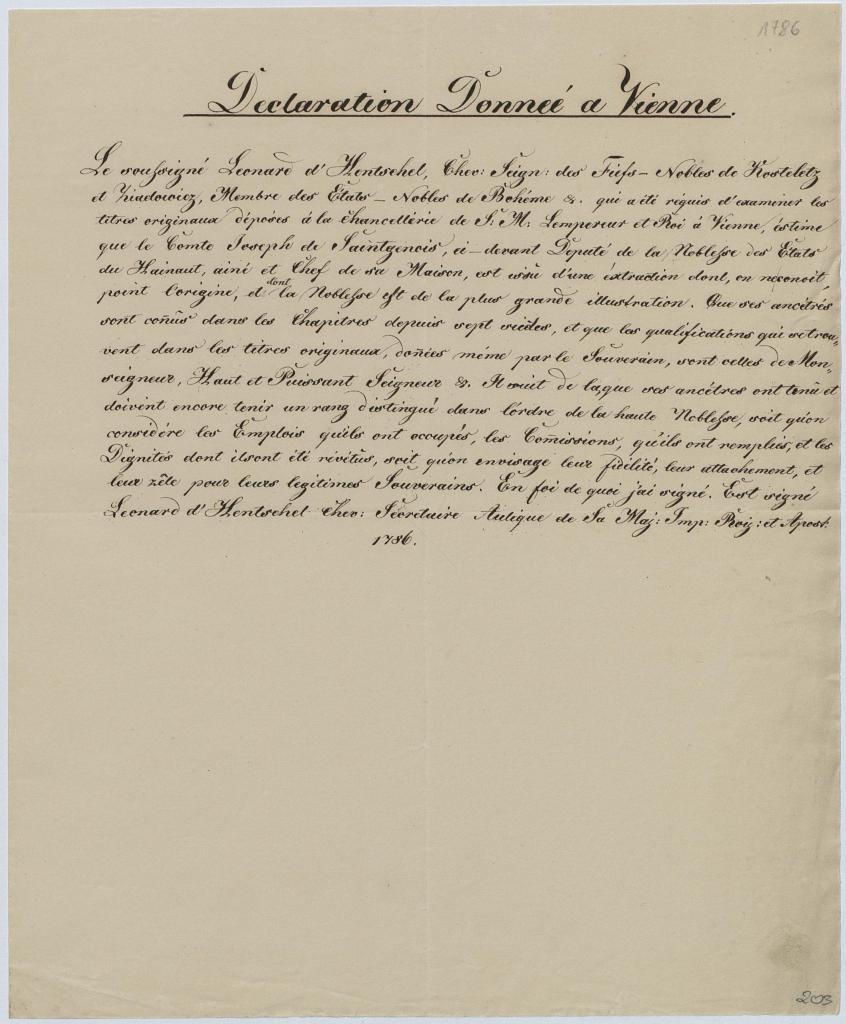 1786
Declaration Donneé a Vienne.
Le soussigné Leonard d'Hentschel, Chev: Seign: des Fiefs - Nobles de Kosteletz
et Ziadowicz, Membre des Etats - Nobles de Bohéme &. qui a été réquis d'examiner les
titres originaux déposés á la Chancellérie de S: M: Lempereur et Roi à Vienne, éstime
que le Comte Joseph de Saintgenois, ci-devant Deputé de la Noblesse des Etats
du Hainaut, ainé et Chef de sa Maison, est issu d'une éxtraction dont, on neconoit
point l'origine, et dont la Noblesse est de la plus grande illustration. Que ses ancétrés
sont conûs dans les Chapitres depuis sept siécles, et que les qualifications qui se trou-
vent dans les titres originaux, donées méme par le Souverain, sont celles de Mon-
seigneur, Haut et Puissant Seigneur &. Il suit de la, que ses ancétres ont tenû et
doivent encore tenir un rang distingué dans l'órdre de la haute Noblesse, soit qu'on
considére les Emplois qu'ils ont occupés, les Comissions, qu'ils ont remplies, et les
Dignités dont ilsont été révétus, soit qu'on envisage leur fidélité, leur attachement, et
leur zéle pour leurs legitimes Souverains. En foi de quoi j'ai signé. Est signé
Leonard d'Hentschel Chev: Sécretaire Aulique de Sa Maj: Imp: Roiy: et Apost:
1786.
203